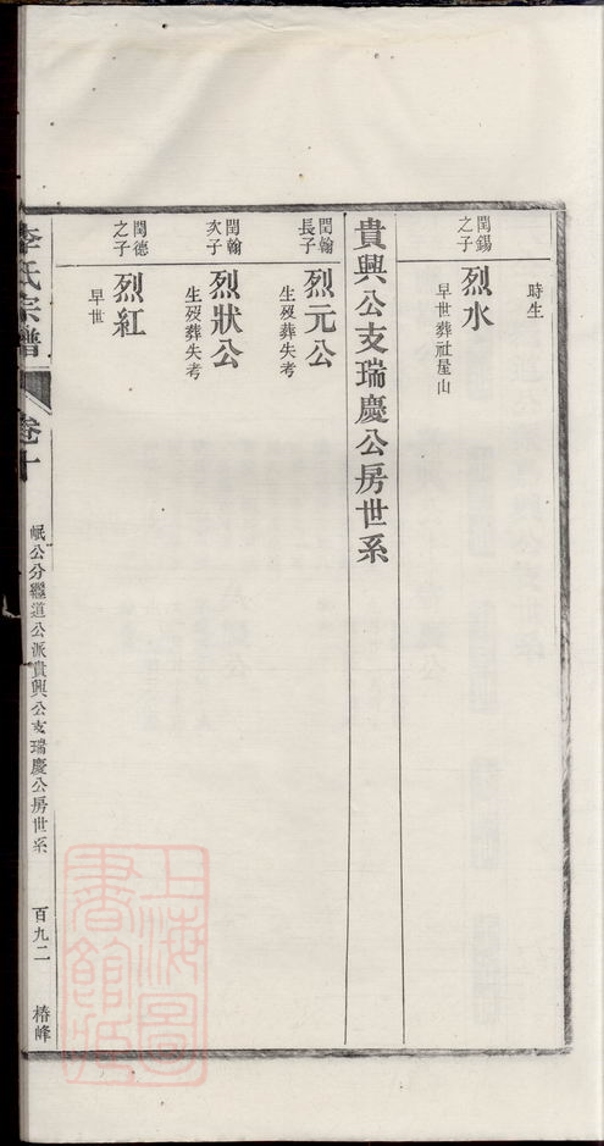 時生
閏錫
之子
烈水
早世葬社屋山
貴興公支瑞慶公房世系
閏翰
長子
烈元公
生歿葬失考
閏翰
次子
烈狀公
生歿葬失考
閏德
之子
烈紅
早世
李氏宗譜
卷十
岷公分繼道公派貴興公支瑞慶公房世系
百九二
椿峰
上海圖
書館藏